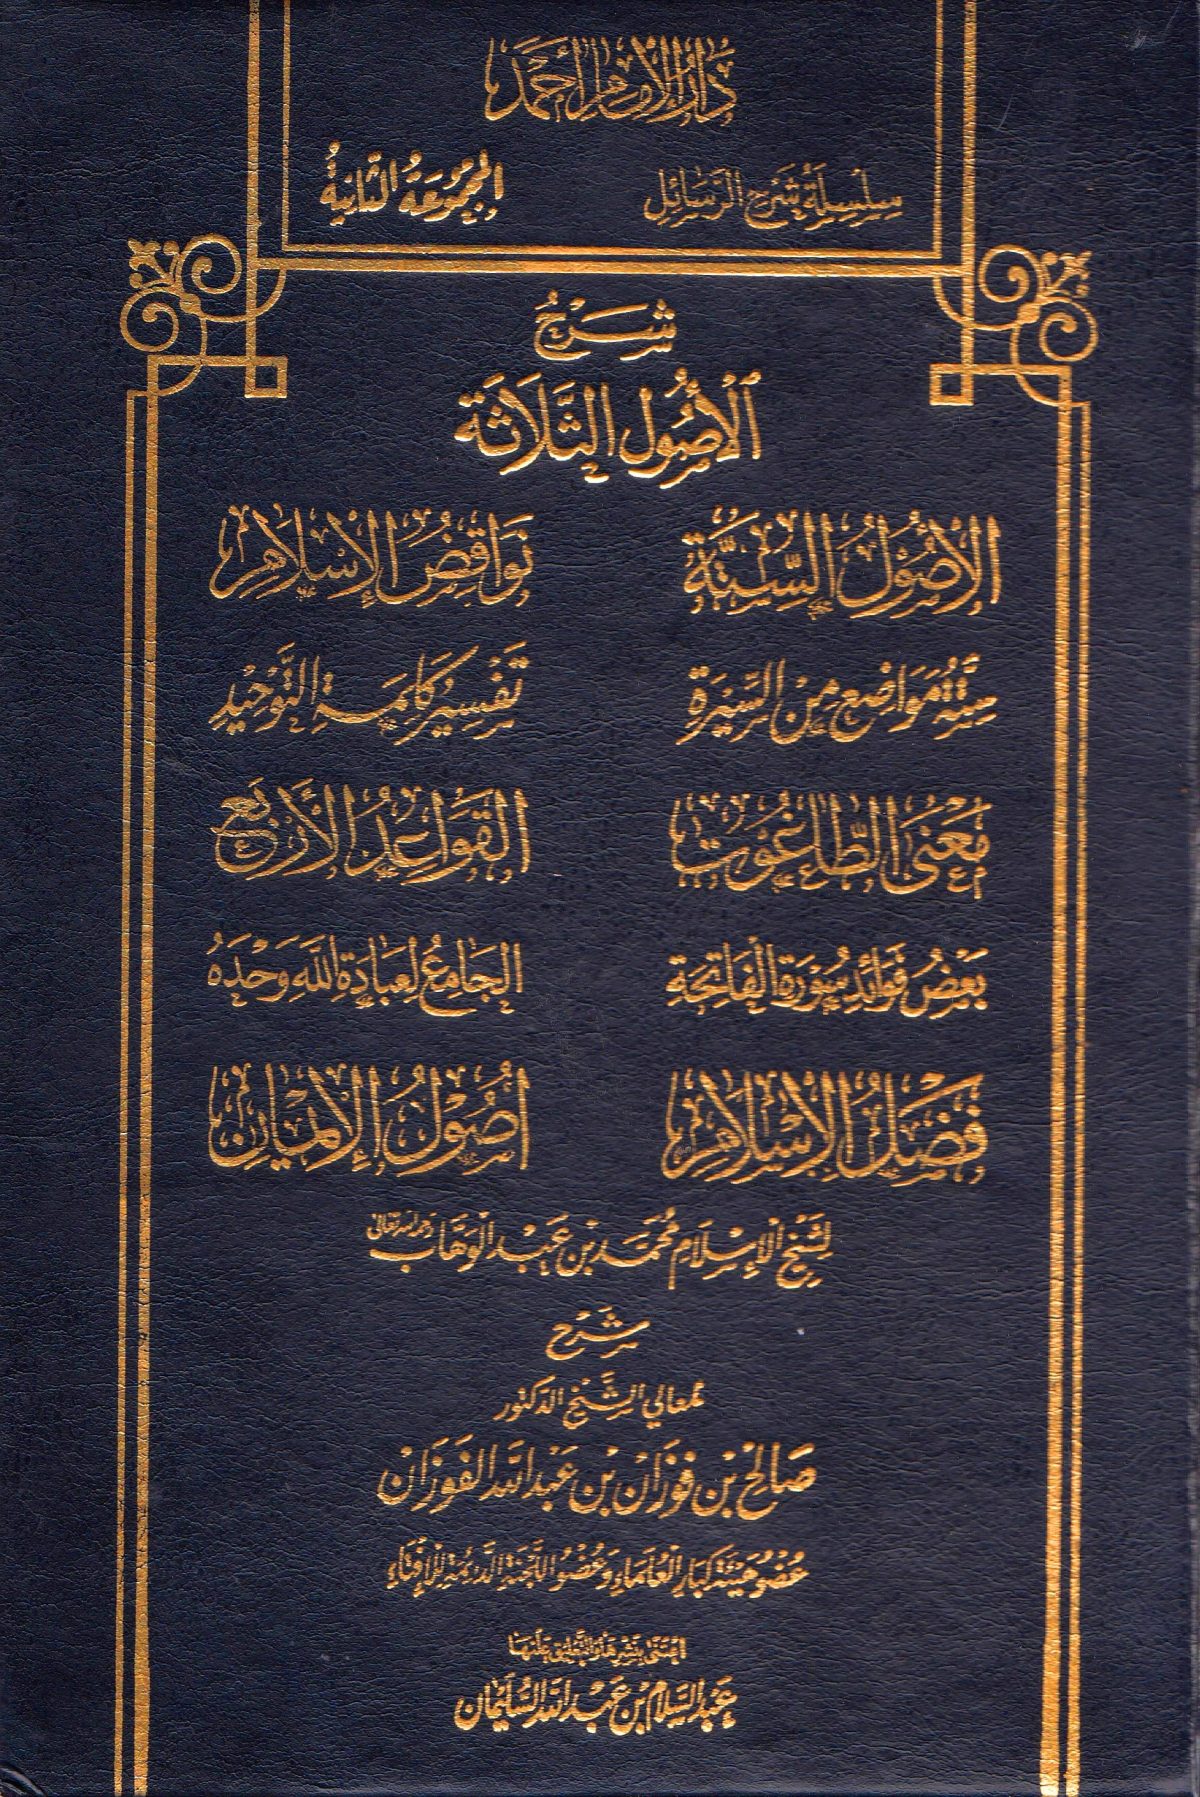 دَارُ الإِمَامِ أَحْمَد
سِلْسِلَة شَرْح الرَّسَائِل المَجْمُوعَةُ الثَّانِيَةُ
شَرْحُ
الْأُصُولِ الثَّلَاثَةِ
الْأُصُولُ السِّتَّةُ نَوَاقِضُ الْإِسْلَامِ
سِتَّةُ مَوَاضِعَ مِنَ السِّيرَةِ تَفْسِيرُ كَلِمَةِ التَّوْحِيدِ
مَعْنَى الطَّاغُوتِ القَوَاعِدُ الأَرْبَعُ
بَعْضُ فَوَائِدِ سُورَةِ الْفَاتِحَةِ الْجَامِعُ لِعِبَادَةِ اللَّهِ وَحْدَهُ
فَضْلُ الْإِسْلَامِ أُصُولُ الْإِيمَانِ
لِشَيْخِ الْإِسْلَامِ مُحَمَّد بْن عَبْدِ الْوَهَّاب رحمه الله تعالى
شَرْح
لمعالي الشَّيْخ الدكتور
صَالِح بْن فَوْزَان بْن عَبْدِ اللَّه الفَوْزَان
عُضْو هَيْئَة كِبَار الْعُلَمَاء وَعُضْو اللَّجْنَة الدَّائِمَة لِلْإِفْتَاء
اعْتَنَى بِنَشْرِهَا وَالتَّعْلِيق عَلَيْهَا
عَبْدُ السَّلَام بْن عَبْدِ اللَّه السُّلَيْمَان